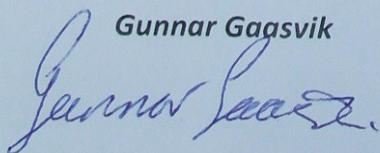 Gunnar Gaasvik
Gunnar Gaasvik